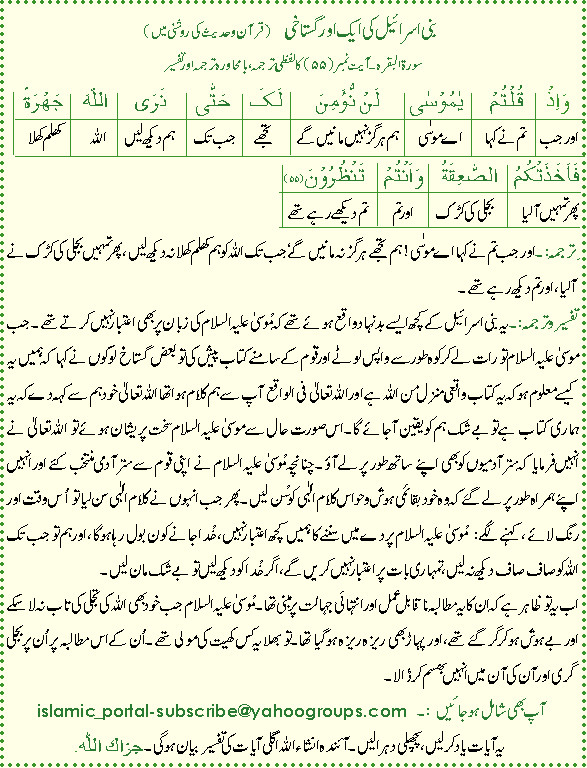 بنی اسرائیل کی ایک اور گستاخی (قرآن و حدیث کی روشنی میں)
سورۃ البقرہ۔ آیت نمبر (۵۵) کا لفظی ترجمہ، با محاورہ ترجمہ اور تفسیر
وَاِذْ قُلْتُمْ یٰمُوْسٰی لَنْ نُّؤْمِنَ لَکَ حَتّٰی نَرَی اللّٰہَ جَھْرَۃً
اور جب تم نے کہا اے موسٰی ہم ہرگز نہیں مانیں گے تجھے جب تک ہم دیکھ لیں اللہ کھلم کھلا
فَاَخَذَتْکُمُ الصّٰعِقَۃُ وَاَنْتُمْ تَنْظُرُوْنَ (۵۵)
پھر تمہیں آ لیا بجلی کی کڑک اور تم تم دیکھے رہے تھے
ترجمہ:۔ اور جب تم نے کہا اے موسٰی! ہم تجھے ہرگز نہ مانیں گے جب تک اللہ کو ہم کھلم کھلا نہ دیکھ لیں، پھر تمہیں بجلی کی کڑک نے
آ لیا، اور تم دیکھ رہے تھے۔
تفسیر و ترجمہ:۔ یہ بنی اسرائیل کے کچھ ایسے بدنہاد واقع ہوئے تھے کہ مُوسٰی علیہ السلام کی زبان پر بھی اعتبار نہیں کرتے تھے۔ جب
موسٰی علیہ السلام تورات لے کر کوہ طور سے واپس لوٹے اور قوم کے سامنے کتاب پیش کی تو بعض گستاخ لوگوں نے کہا کہ ہمیں یہ
کیسے معلوم ہو کہ یہ کتاب واقعی منزل من اللہ ہے اور اللہ تعالیٰ فی الواقع آپ سے ہم کلام ہوا تھا اللہ تعالیٰ خود ہم سے کہہ دے کہ یہ
ہماری کتاب ہے تو بے شک ہم کو یقین آ جائے گا۔ اس صورت حال سے موسٰی علیہ السلام سخت پریشان ہوئے تو اللہ تعالیٰ نے
انہیں فرمایا کہ ستر آدمیوں کو بھی اپنے ساتھ طور پر لے آؤ۔ چنانچہ مُوسٰی علیہ السلام نے اپنی قوم سے ستر آدمی منتخب کئے اور انہیں
اپنے ہمراہ طور پر لے گئے کہ وہ خود بقائمی ہوش و حواس کلام الٰہی کو سُن لیں۔ پھر جب انہوں نے کلام الٰہی سن لیا تو اُس وقت اور
رنگ لائے، کہنے لگے: مُوسٰی علیہ السلام پردے میں سننے کا ہمیں کچھ اعتبار نہیں، خُدا جانے کون بول رہا ہوگا، اور ہم تو جب تک
اللہ کو صاف صاف دیکھ نہ لیں، تمہاری بات پر اعتبار نہیں کریں گے، اگر خُدا کو دیکھ لیں تو بے شک مان لیں۔
اب یہ تو ظاہر ہے کہ ان کا یہ مطالبہ نا قابل عمل اور انتہائی جہالت پر مبنٰی تھا۔ موسٰی علیہ السلام جب خود بھی اللہ کی تجلی کی تاب نہ لا سکے
اور بے ہوش ہو کر گر گئے تھے، اور پہاڑ بھی ریزہ ریزہ ہو گیا تھا۔ تو بھلا یہ کس کھیت کی مولی تھے۔ اُن کے اس مطالبہ پر اُن پر بجلی
گری اور آن کی آن میں انہیں بھسم کر ڈالا۔
آپ بھی شامل ہو جائیں :۔ islamic_portal-subscribe@yahoogroups.com
یہ آیات یاد کر لیں، پچھلی دہرا لیں۔ آئندہ انشاء اللہ اگلی آیات کی تفسیر بیان ہو گی۔ جزاک اللّٰہ.